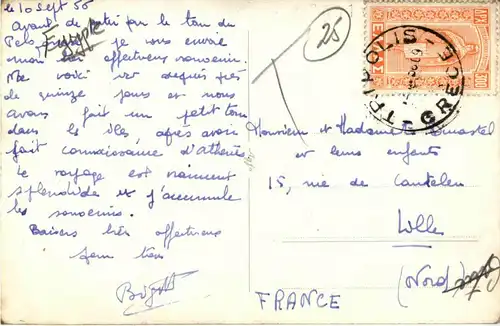 le 10 sept 56
Avant de partir par le tour du
Peloponnèse je vous envoie
mon très affectueux souvenir.
Me voici ici depuis près
de quinze jours et nous
avons fait un petit tour
dans les îles après avoir
fait connaissance d'Athènes
Le voyage est vraiment
splendide et j'accumule
les souvenirs.
Baisers très affectueux
à tous
25
300
ΤΡΙΠΟΛΙΣ
TRIPOLIS - GRECE
Monsieur et Madame
et leurs enfants
15, rue de Canteleu
Lille
(Nord)
FRANCE